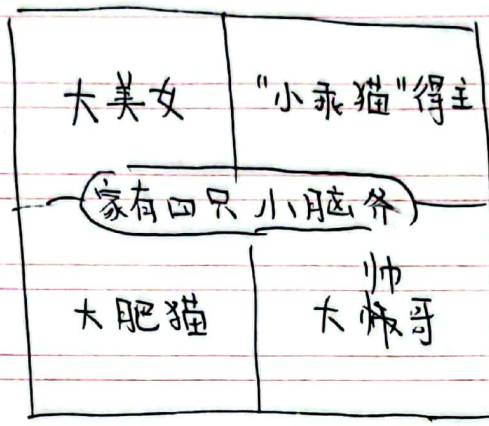 大美女
"小乖猫"得主
家有四只小脑斧
大肥猫
大帅哥